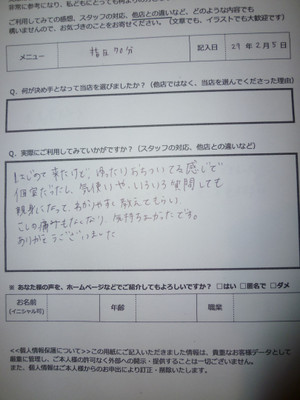 非常に参考になり、私どもにとっても何よりの
してみての感想、スタッフの対応、他店との違いなど、どのような内容でも
構いませんので、お気づきのことをお寄せください。(文章でも、イラストでも大歓迎です)
メニュー 指圧70分 記入日 29年2月5日
Q. 何が決め手となって当店を選びましたか?(他店ではなく、当店を選んでくださった理由)
Q. 実際にご利用してみていかがですか?(スタッフの対応、他店との違いなど)
はじめて来たけど、ゆったりおちついてる感じで
個室だったし、気使いや、いろいろ質問しても
親身になって、わかりやすく教えてもらい
こしの痛みもなくなり、気持ちよかったです。
ありがとうございました
※ あなた様の声を、ホームページなどでご紹介してもよろしいですか? □はい □匿名で □ダメ
お名前
(イニシャル可)
年齢
職業
<<個人情報保護について>>この用紙にご記入いただきました情報は、貴重なお客様データとして
厳重に管理し、ご本人様の許可なく外部への開示・提供することは一切ございません。
また、個人情報はご本人様からのお申出により訂正・削除いたします。